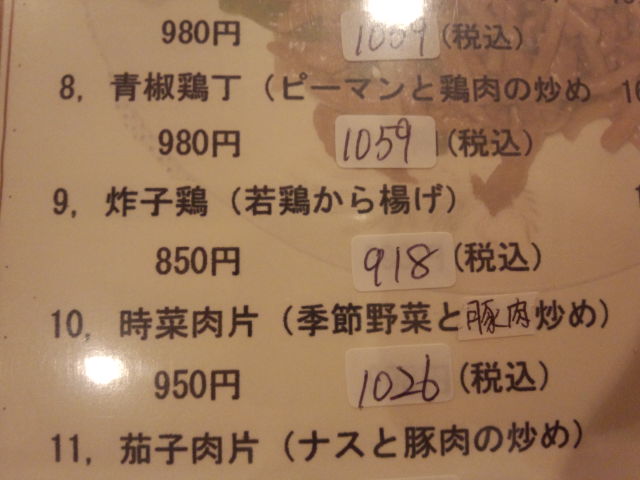 980円 1059 (税込)
8, 青椒鶏丁 (ピーマンと鶏肉の炒め
980円 1059 (税込)
9, 炸子鶏 (若鶏から揚げ)
850円 918 (税込)
10, 時菜肉片 (季節野菜と豚肉炒め)
950円 1026 (税込)
11, 茄子肉片 (ナスと豚肉の炒め)